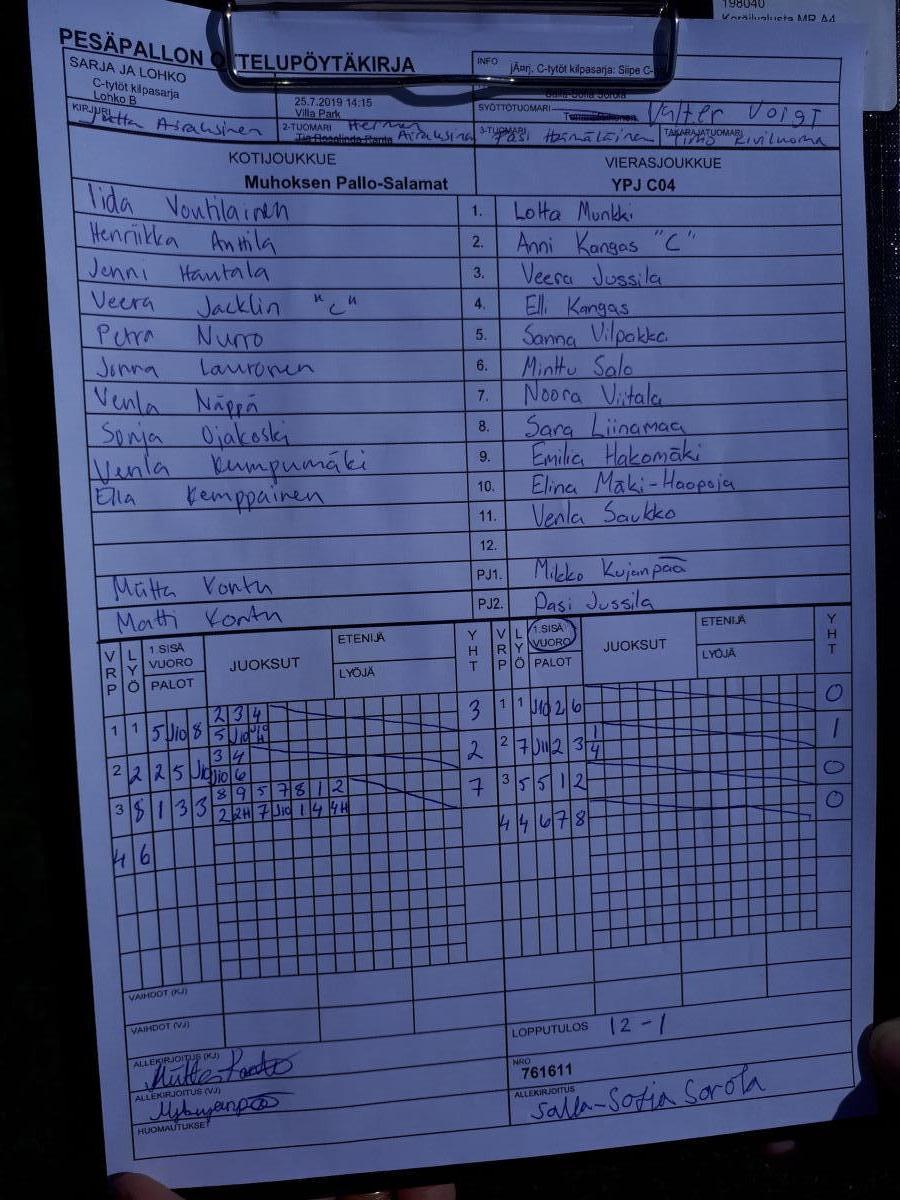 198040
Keräilyalusta MR A4
PESÄPALLON OTTELUPÖYTÄKIRJA
SARJA JA LOHKO
C-tytöt kilpasarja
Lohko B
25.7.2019 14:15
Villa Park
INFO
jÄnrj, C-tytöt kilpasarja: Siipe C-
Salla-Sofia Sorola
SYÖTTÖTUOMARI
Valter Voigt
KIRJURI
Jutta Airaksinen
2-TUOMARI
Herman Airaksinen
3-TUOMARI
Pasi Hämäläinen
TAKARAJATUOMARI
Timo Kiviluoma
KOTIJOUKKUE
Muhoksen Pallo-Salamat
VIERASJOUKKUE
YPJ C04
Iida Voutilainen 1. Lotta Munkki
Henriikka Anttila 2. Anni Kangas "C"
Jenni Hautala 3. Veera Jussila
Veera Jacklin "C" 4. Elli Kangas
Petra Nurro 5. Sanna Vilpakka
Jonna Lauronen 6. Minttu Salo
Venla Näppä 7. Noora Viitala
Sonja Ojakoski 8. Sara Liinamaa
Venla Kumpumäki 9. Emilia Hakomäki
Ella Kemppainen 10. Elina Mäki-Haapoja
11. Venla Saukko
12.
Miitta Kontu PJ1. Mikko Kujanpää
Matti Kontu PJ2. Pasi Jussila
VRP LYÖ 1.SISÄ VUORO PALOT JUOKSUT ETENIJÄ LYÖJÄ YHT VRP LYÖ 1.SISÄ VUORO PALOT JUOKSUT ETENIJÄ LYÖJÄ YHT
2 3 4
1 1 5 J10 8 3 1 1 J10 2 6 0
3 4
2 2 2 5 J10 2 2 7 J11 2 3 1 1
J10 6 4
8 9 5 7 8 1 2
3 8 1 3 3 7 3 5 5 1 2 0
2 2H 7 J10 1 4 4H
4 6 4 4 6 7 8 0
VAIHDOT (KJ)
VAIHDOT (VJ)
LOPPUTULOS 12-1
ALLEKIRJOITUS (KJ)
Miitta Kontu
NRO
761611
ALLEKIRJOITUS (VJ)
ALLEKIRJOITUS
Salla-Sofia Sorola
HUOMAUTUKSET